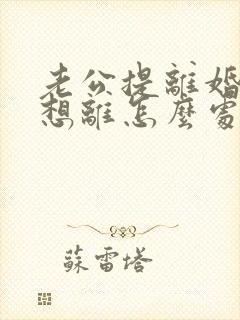 老公提離婚
想離怎麼處
蘇雷塔